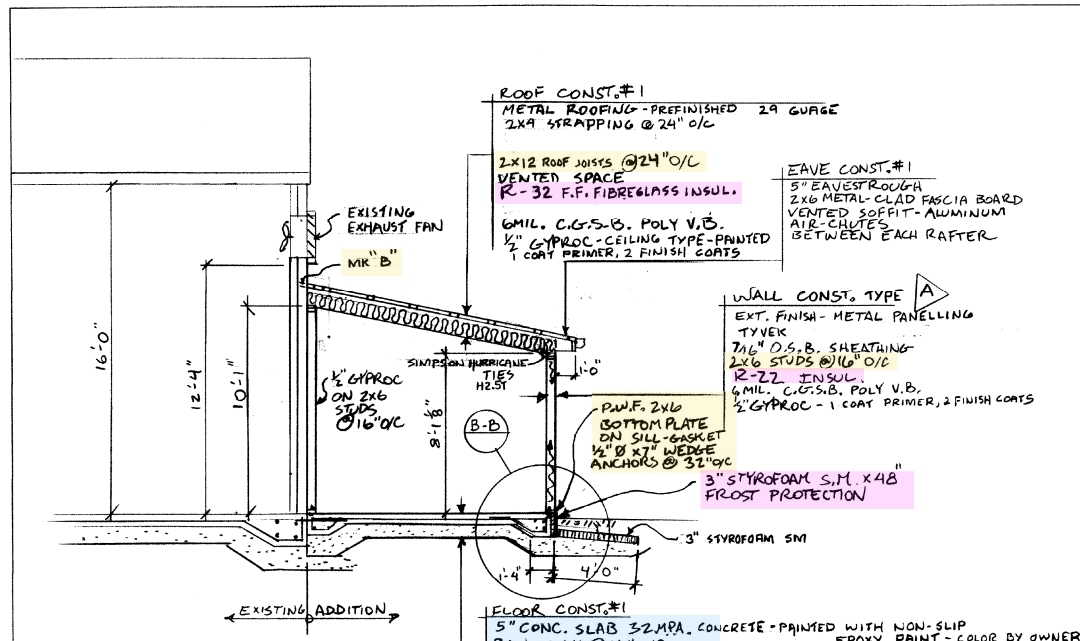 ROOF CONST.#1
METAL ROOFING - PREFINISHED 29 GUAGE
2X4 STRAPPING @ 24" O/C
2X12 ROOF JOISTS @ 24" O/C
VENTED SPACE
R-32 F.F. FIBREGLASS INSUL.
6MIL. C.G.S.B. POLY V.B.
½" GYPROC - CEILING TYPE - PAINTED
1 COAT PRIMER, 2 FINISH COATS
EAVE CONST.#1
5" EAVESTROUGH
2X6 METAL-CLAD FASCIA BOARD
VENTED SOFFIT - ALUMINUM
AIR-CHUTES
BETWEEN EACH RAFTER
EXISTING
EXHAUST FAN
MK "B"
WALL CONST. TYPE A
EXT. FINISH - METAL PANELLING
TYVEK
7/16" O.S.B. SHEATHING
2X6 STUDS @ 16" O/C
R-22 INSUL.
6MIL. C.G.S.B. POLY V.B.
½" GYPROC - 1 COAT PRIMER, 2 FINISH COATS
16'-0"
12'-4"
10'-1"
½" GYPROC
ON 2X6
STUDS
@ 16" O/C
SIMPSON HURRICANE
TIES
H2.5T
1'-0"
8'-1⅛"
B-B
P.W.F. 2X6
BOTTOM PLATE
ON SILL-GASKET
½" Ø X 7" WEDGE
ANCHORS @ 32" O/C
3" STYROFOAM S.M. X 48"
FROST PROTECTION
3" STYROFOAM SM
1'-4"
4'-0"
EXISTING ADDITION
FLOOR CONST.#1
5" CONC. SLAB 32MPA. CONCRETE - PAINTED WITH NON-SLIP
EPOXY PAINT - COLOR BY OWNER